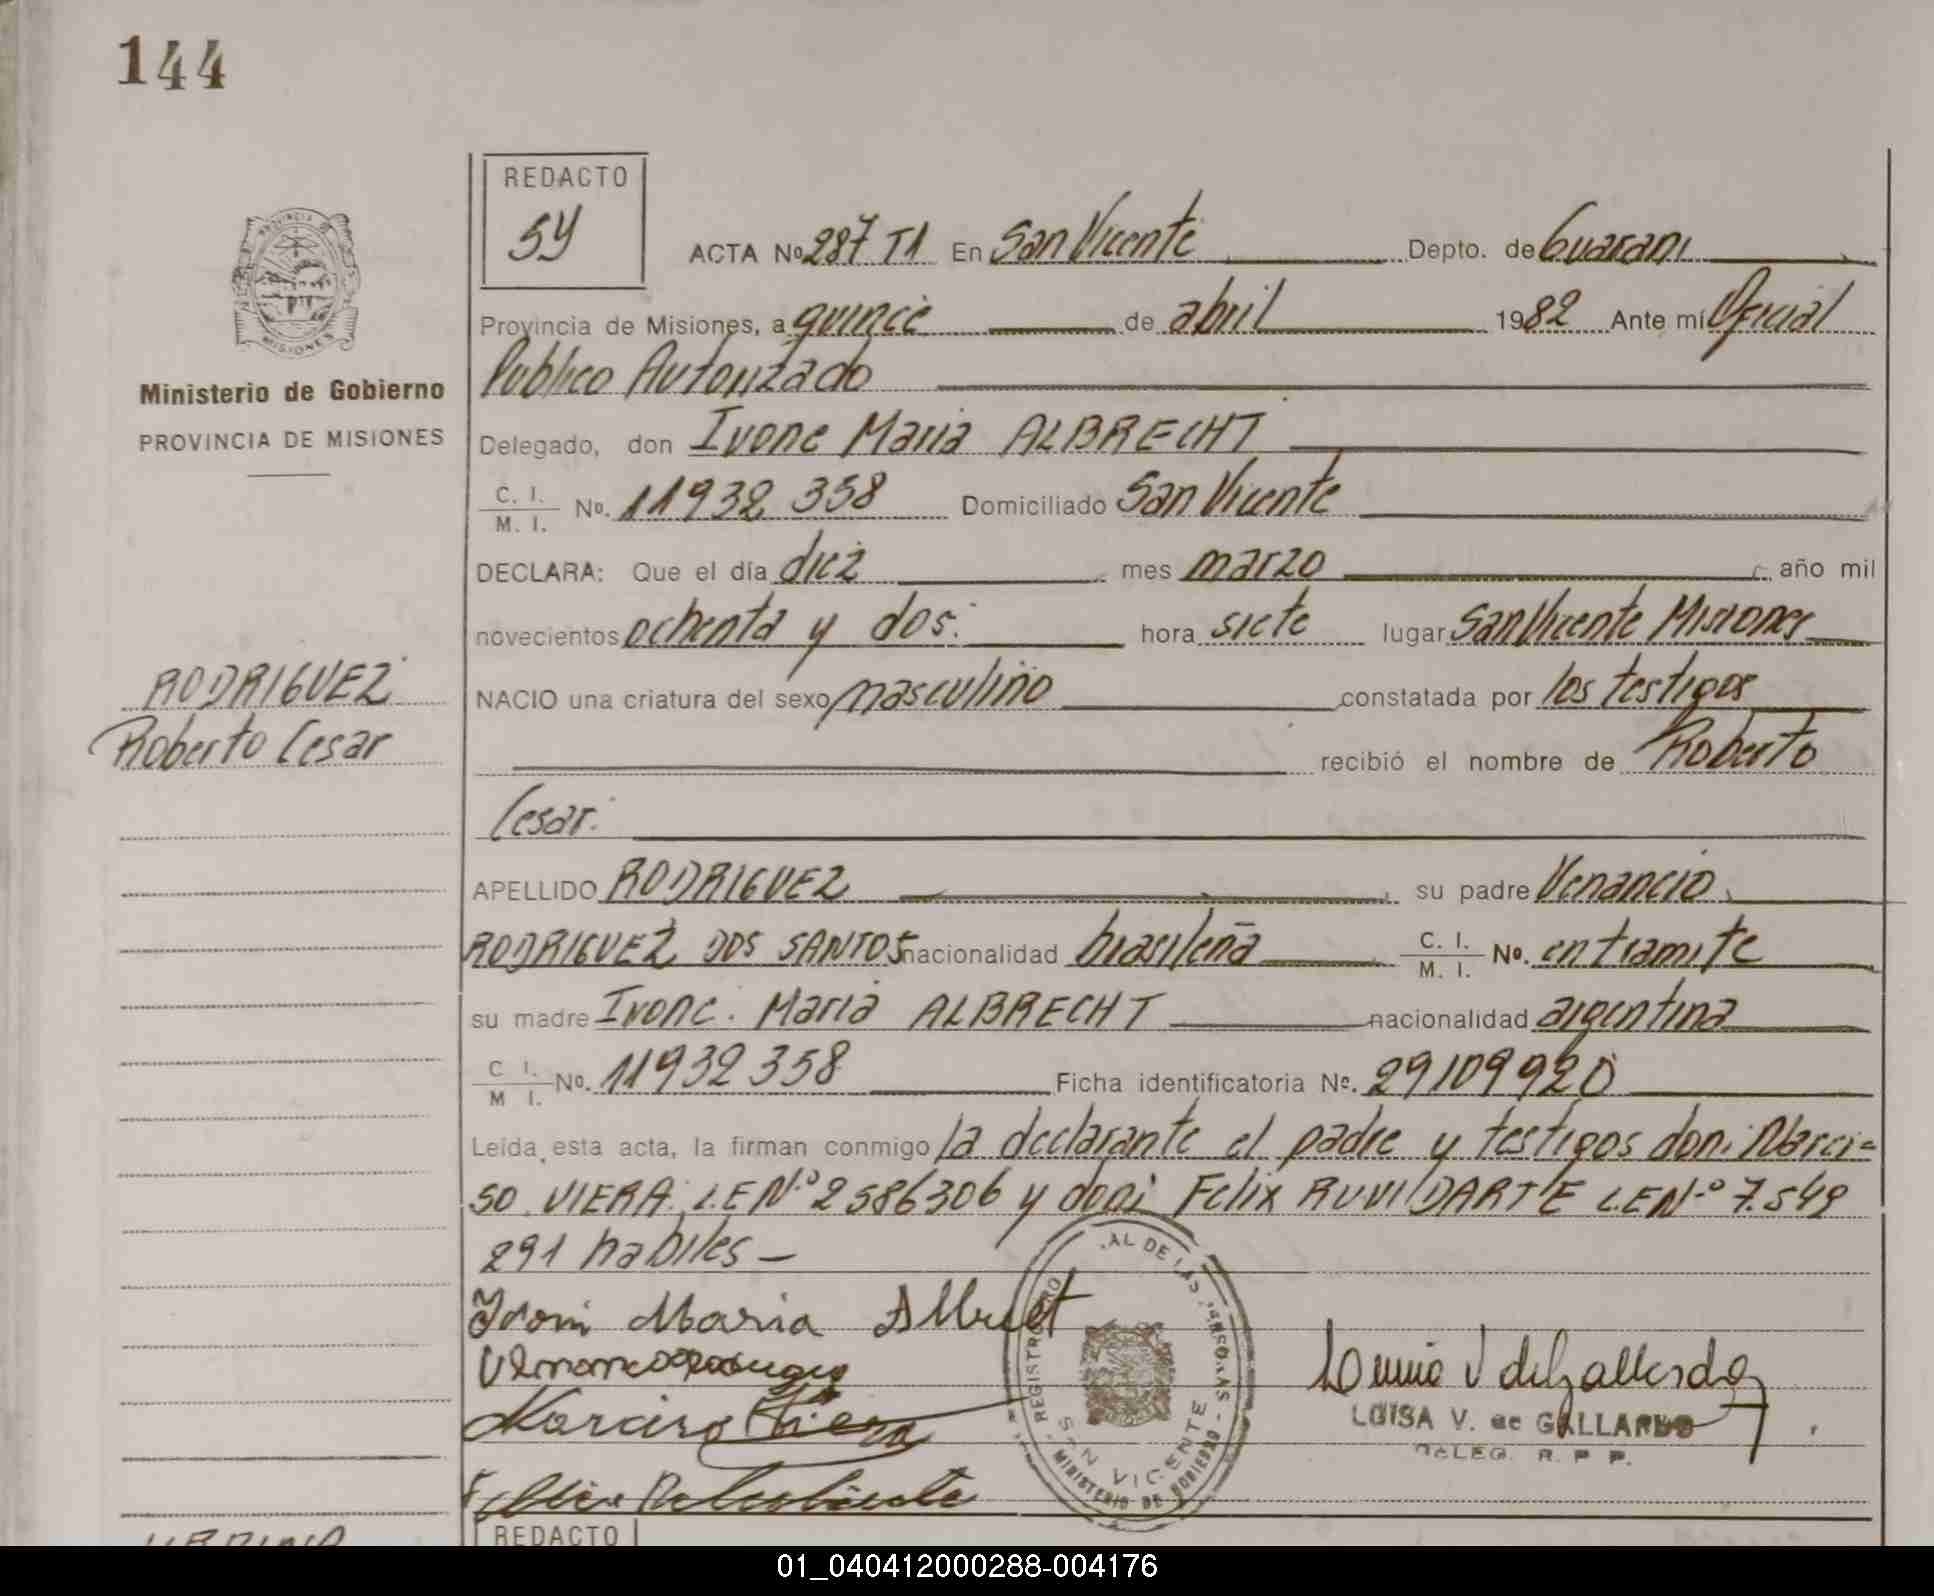 144
REDACTO
SY
ACTA Nº 287 T1 En San Vicente Depto. de Guarani
Provincia de Misiones, a quince de abril 1982 Ante mí Oficial
Publico Autorizado
Ministerio de Gobierno
PROVINCIA DE MISIONES
Delegado, don Ivone Maria ALBRECHT
C. I.
M. I. Nº. 11932 358 Domiciliado San Vicente
DECLARA: Que el día diez mes marzo año mil
novecientos ochenta y dos. hora siete lugar San Vicente Misiones
RODRIGUEZ
Roberto Cesar
NACIO una criatura del sexo masculino constatada por los testigos
recibió el nombre de Roberto
Cesar.
APELLIDO RODRIGUEZ su padre Venancio
RODRIGUEZ DOS SANTOS nacionalidad brasileña C. I. M. I. Nº. en tramite
su madre Ivone. Maria ALBRECHT nacionalidad argentina
C I. M I. Nº. 11932 358 Ficha identificatoria Nº. 29109920
Leída esta acta, la firman conmigo la declarante el padre y testigos don: Narci=
so VIERA: L.E Nº 2586306 y don: Felix RUVILDARTE L.E Nº 7.549
291 habiles —
Maria
Narciso Viera
LUISA V. de GALLARDO
DELEG. R. P. P.
SAN VICENTE
MINISTERIO DE GOBIERNO
REDACTO
01_040412000288-004176